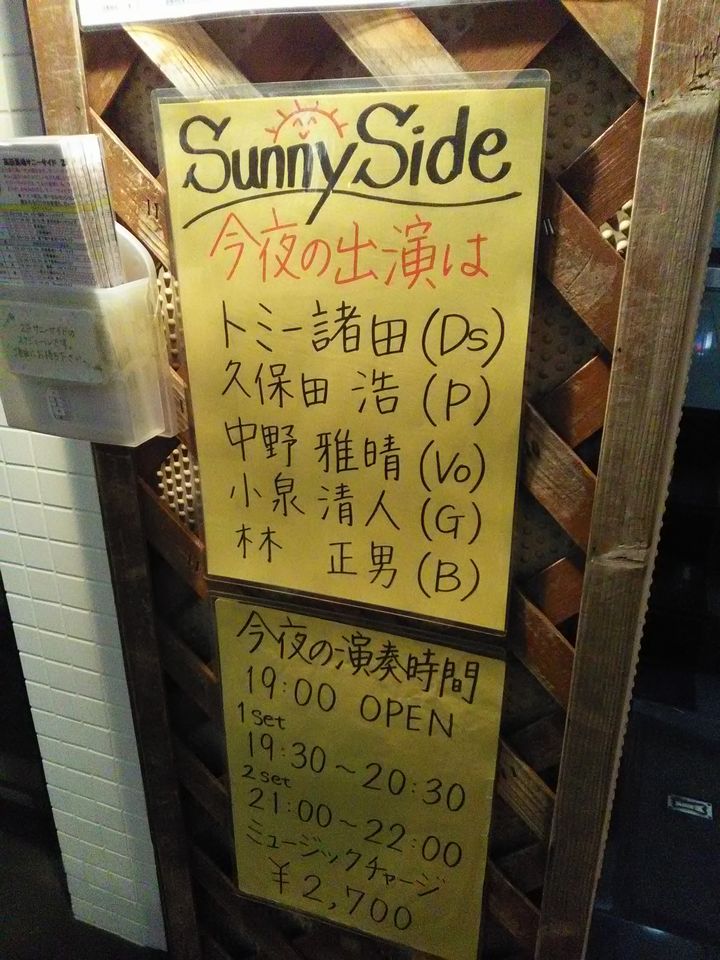 Sunny Side
今夜の出演は
トミー諸田(Ds)
久保田 浩(P)
中野 雅晴(Vo)
小泉 清人(G)
林 正男(B)
今夜の演奏時間
19:00 OPEN
1set
19:30〜20:30
2set
21:00〜22:00
ミュージックチャージ
¥2,700